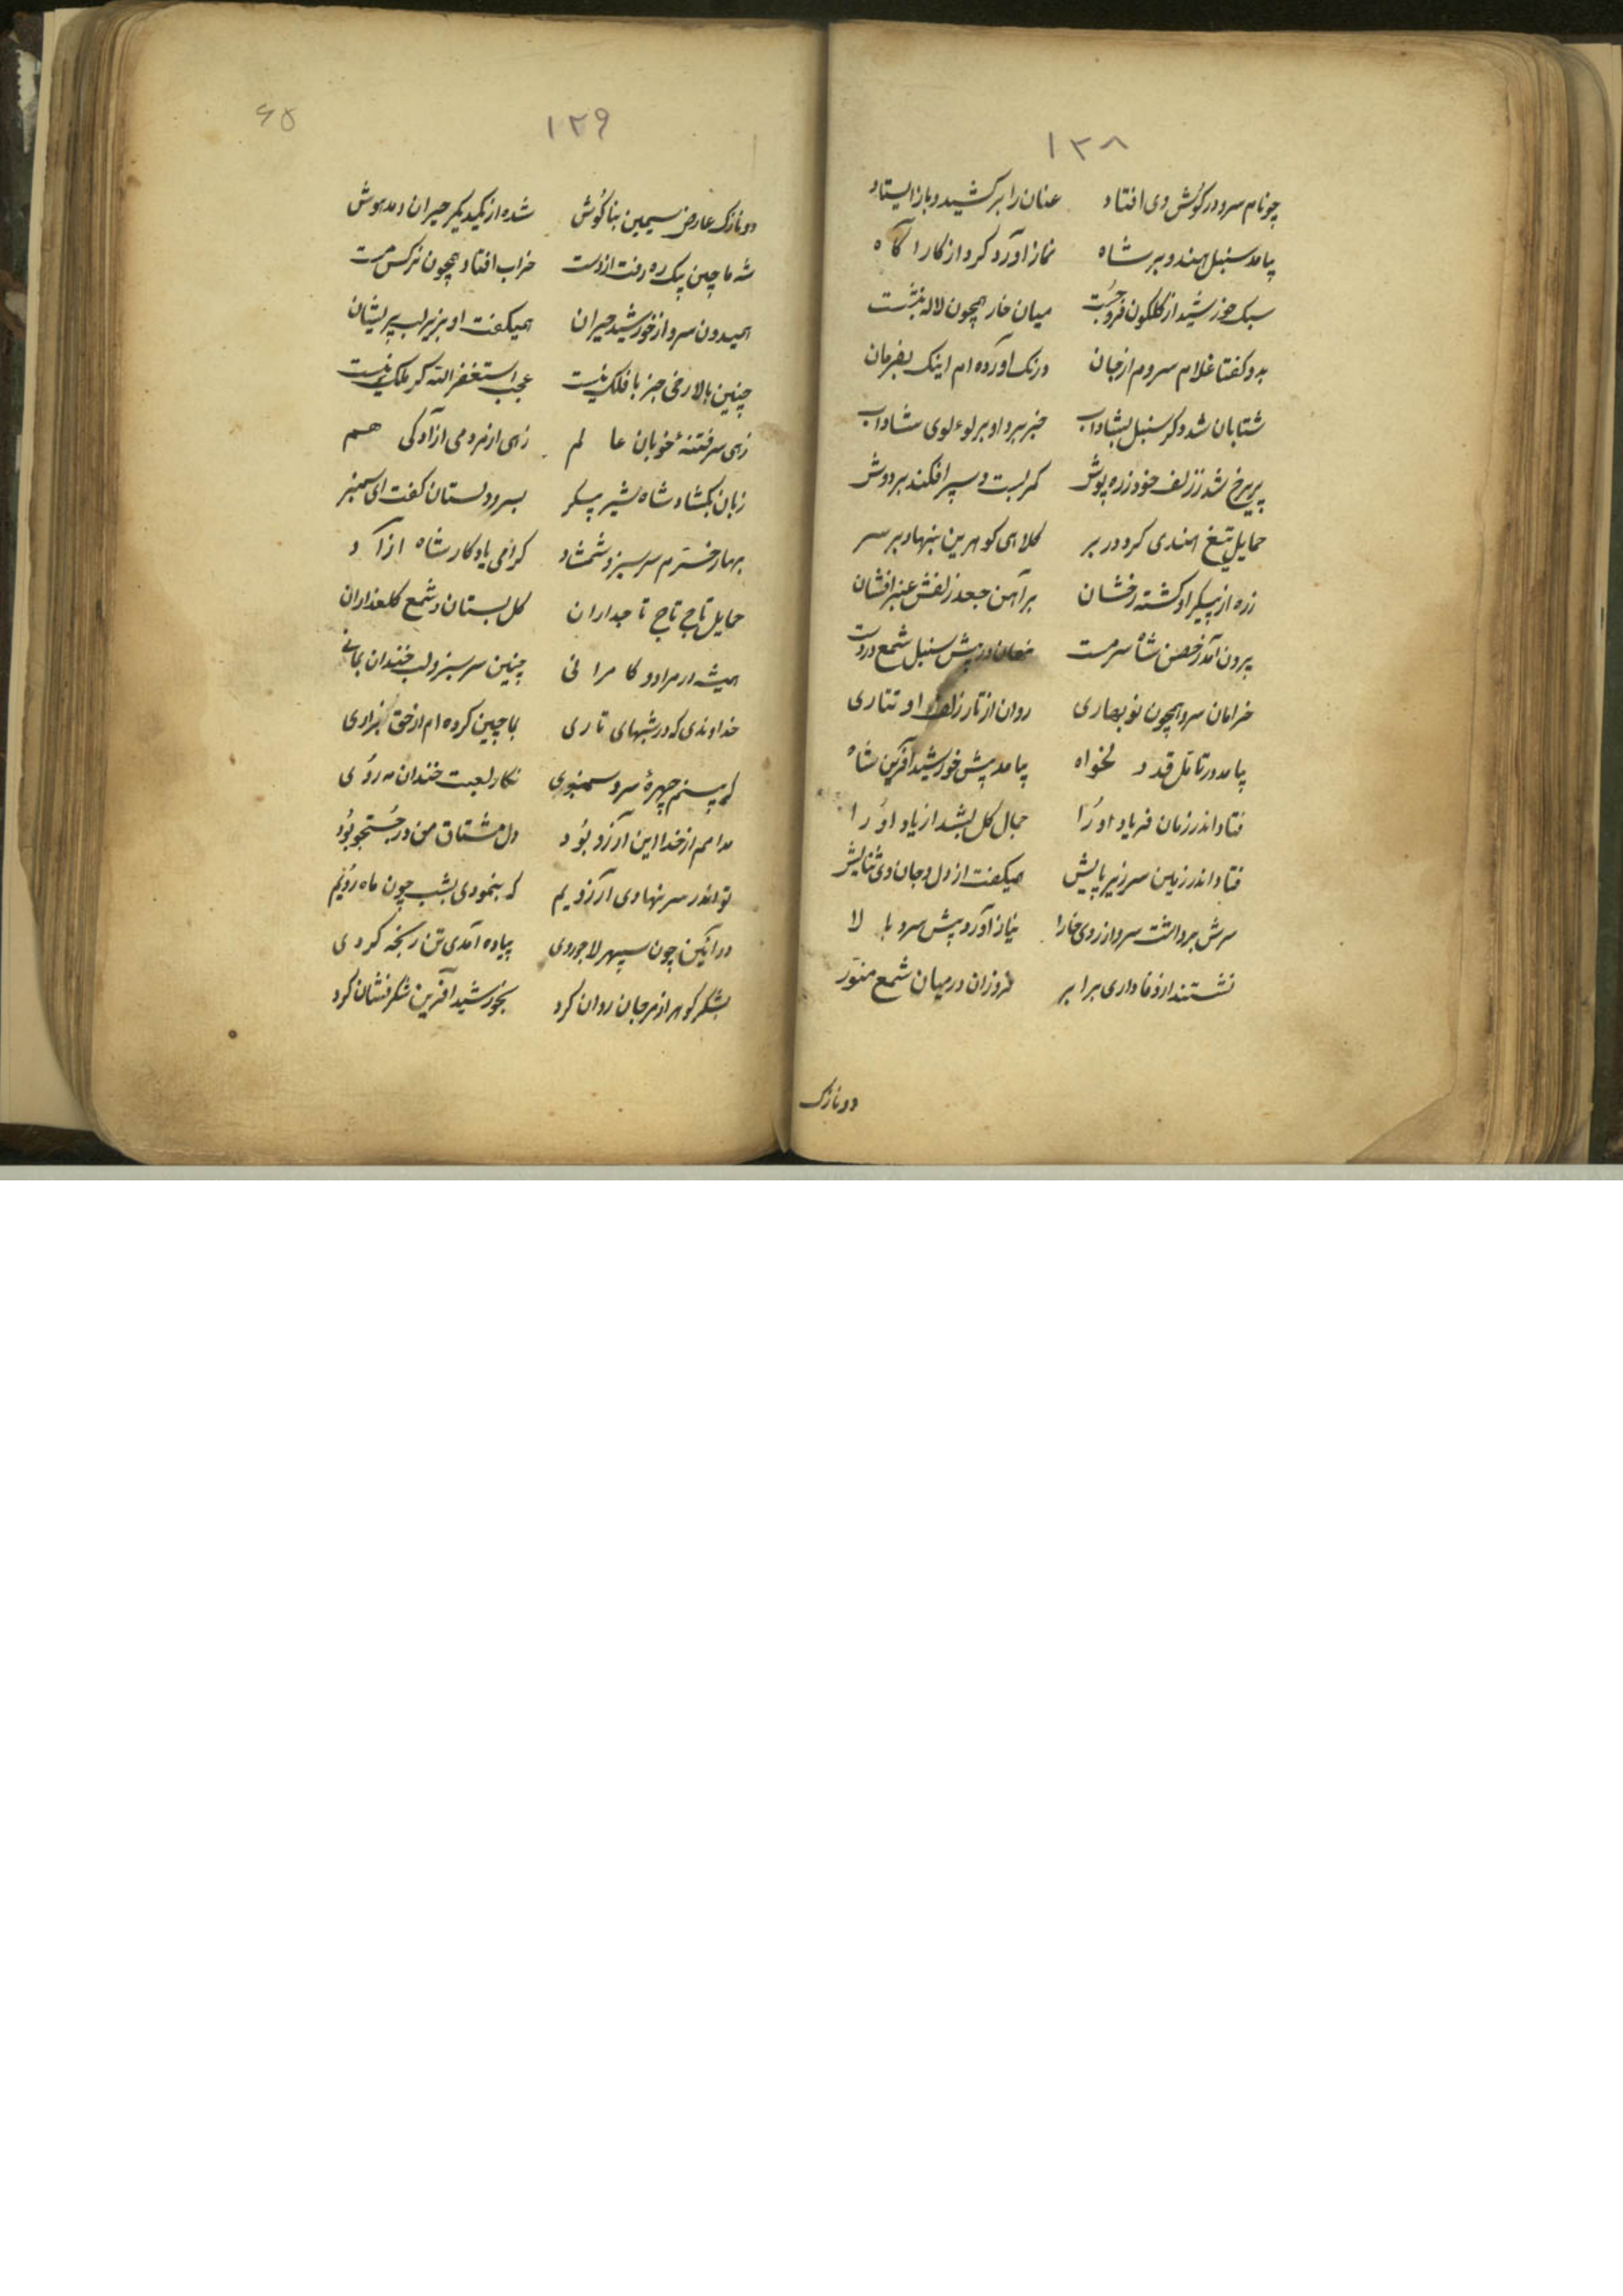 ۱۲۸
چو نام سرو در گوش وی افتاد عنان را برکشید و باز ایستاد
بیامد سنبل هندو بر شاه نماز آورد کرد از کار آگاه
سبک خورشید از گلگون فروجست میان خار همچون لاله بنشست
بدو گفتا غلام سروم از جان ورنک آورده ام اینک بفرمان
شتابان شد دگر سنبل بشاداب خبر برد او بر لوءلوی شاداب
پریرخ شد ز زلف خود زره پوش کمر بست و سپر افکند بر دوش
حمایل تیغ هندی کرد در بر کلاهی گوهرین بنهاد بر سر
زره از پیکر او گشته رخشان بر آهن جعد زلفش عنبرافشان
برون آمد ز حصن شاه سرمست در پیش سنبل شمع در دست
خرامان سرو همچون نوبهاری روان از تار زلف او تتاری
بیامد در تاتل قد دلخواه بیامد پیش خورشید آفرین شاه
فتاد اندر زمان فریاد او را جمال گل بشد از یاد او را
فتاد اندر زمین سر زیر پایش همیگفت از دل و جان وی ثنایش
سرش برداشت سرو از روی خارا نیاز آورد پیش سرو بالا
نشستند از وفاداری برابر فروزان در میان شمع منوّر
دو نازک
۱۲۹
۶۵
دو نازک عارض سیمین بناگوش شده از یکدیگر حیران و مدهوش
شه ماچین بیک ره رفت از دست خراب افتاد همچون نرگس مست
همیدون سرو از خورشید حیران همیگفت او بزیر لب پریشان
چنین بالا رخی جز با فلک نیست عجب استغفر الله گر ملک نیست
زهی سر فتنهٔ خوبان عالم زهی از مردمی آزادگی هم
زبان بگشاد شاه شیر پیکر بسرو دلستان گفت ای سمنبر
بهار خرّم سرسبز و شمشاد گرامی یادگار شاه آزاد
حمایل تاج تاج تاجداران گل بستان و شمع گلعذاران
همیشه در مراد و کامرانی چنین سرسبز و لب خندان بمانی
خداوندی که در شبهای تاری بماچین کرده ام از حق بزاری
که بینم چهرهٔ سرو سمنبوی نگار لعبت خندان مه روی
مدامم از خدا این آرزو بود دل مشتاق من در جستجو بود
تو اندر سر نهادی آرزویم که بنمودی بشب چون ماه رویم
در آیین چون سپهر لاجوردی پیاده آمدی تن رنجه کردی
بشکر گوهر از مرجان روان کرد بخورشید آفرین شکرفشان کرد